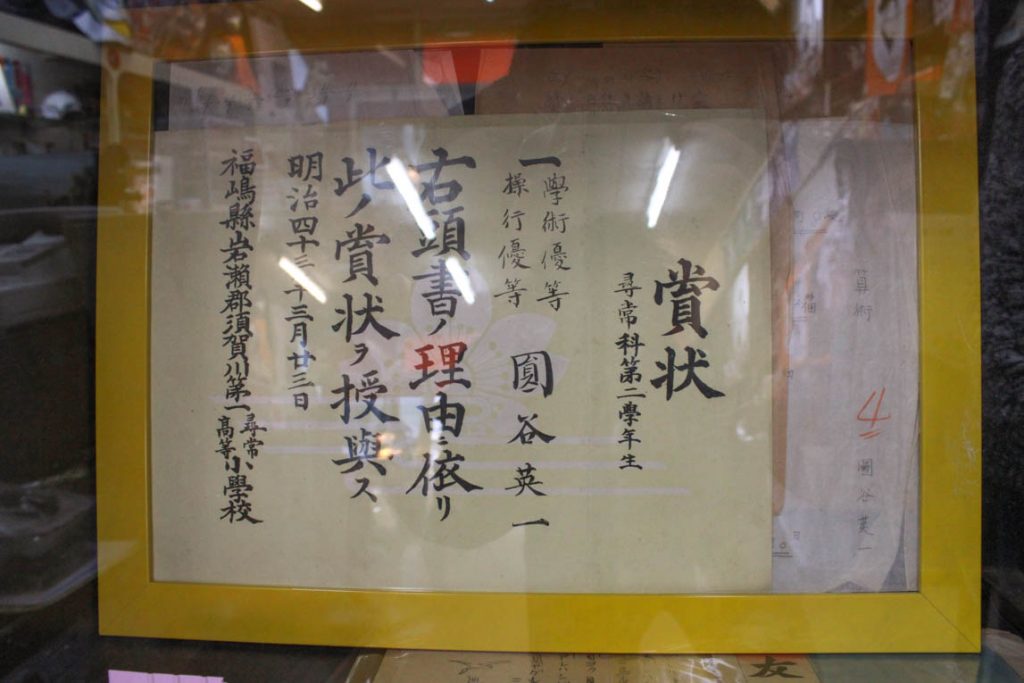 賞状
尋常科第二學年生
圓谷英一
一學術優等
操行優等
右頭書ノ理由ニ依リ
此ノ賞状ヲ授與ス
明治四十三年三月廿三日
福嶋縣岩瀬郡須賀川第一尋常高等小學校
算術
4
圓谷英一
友